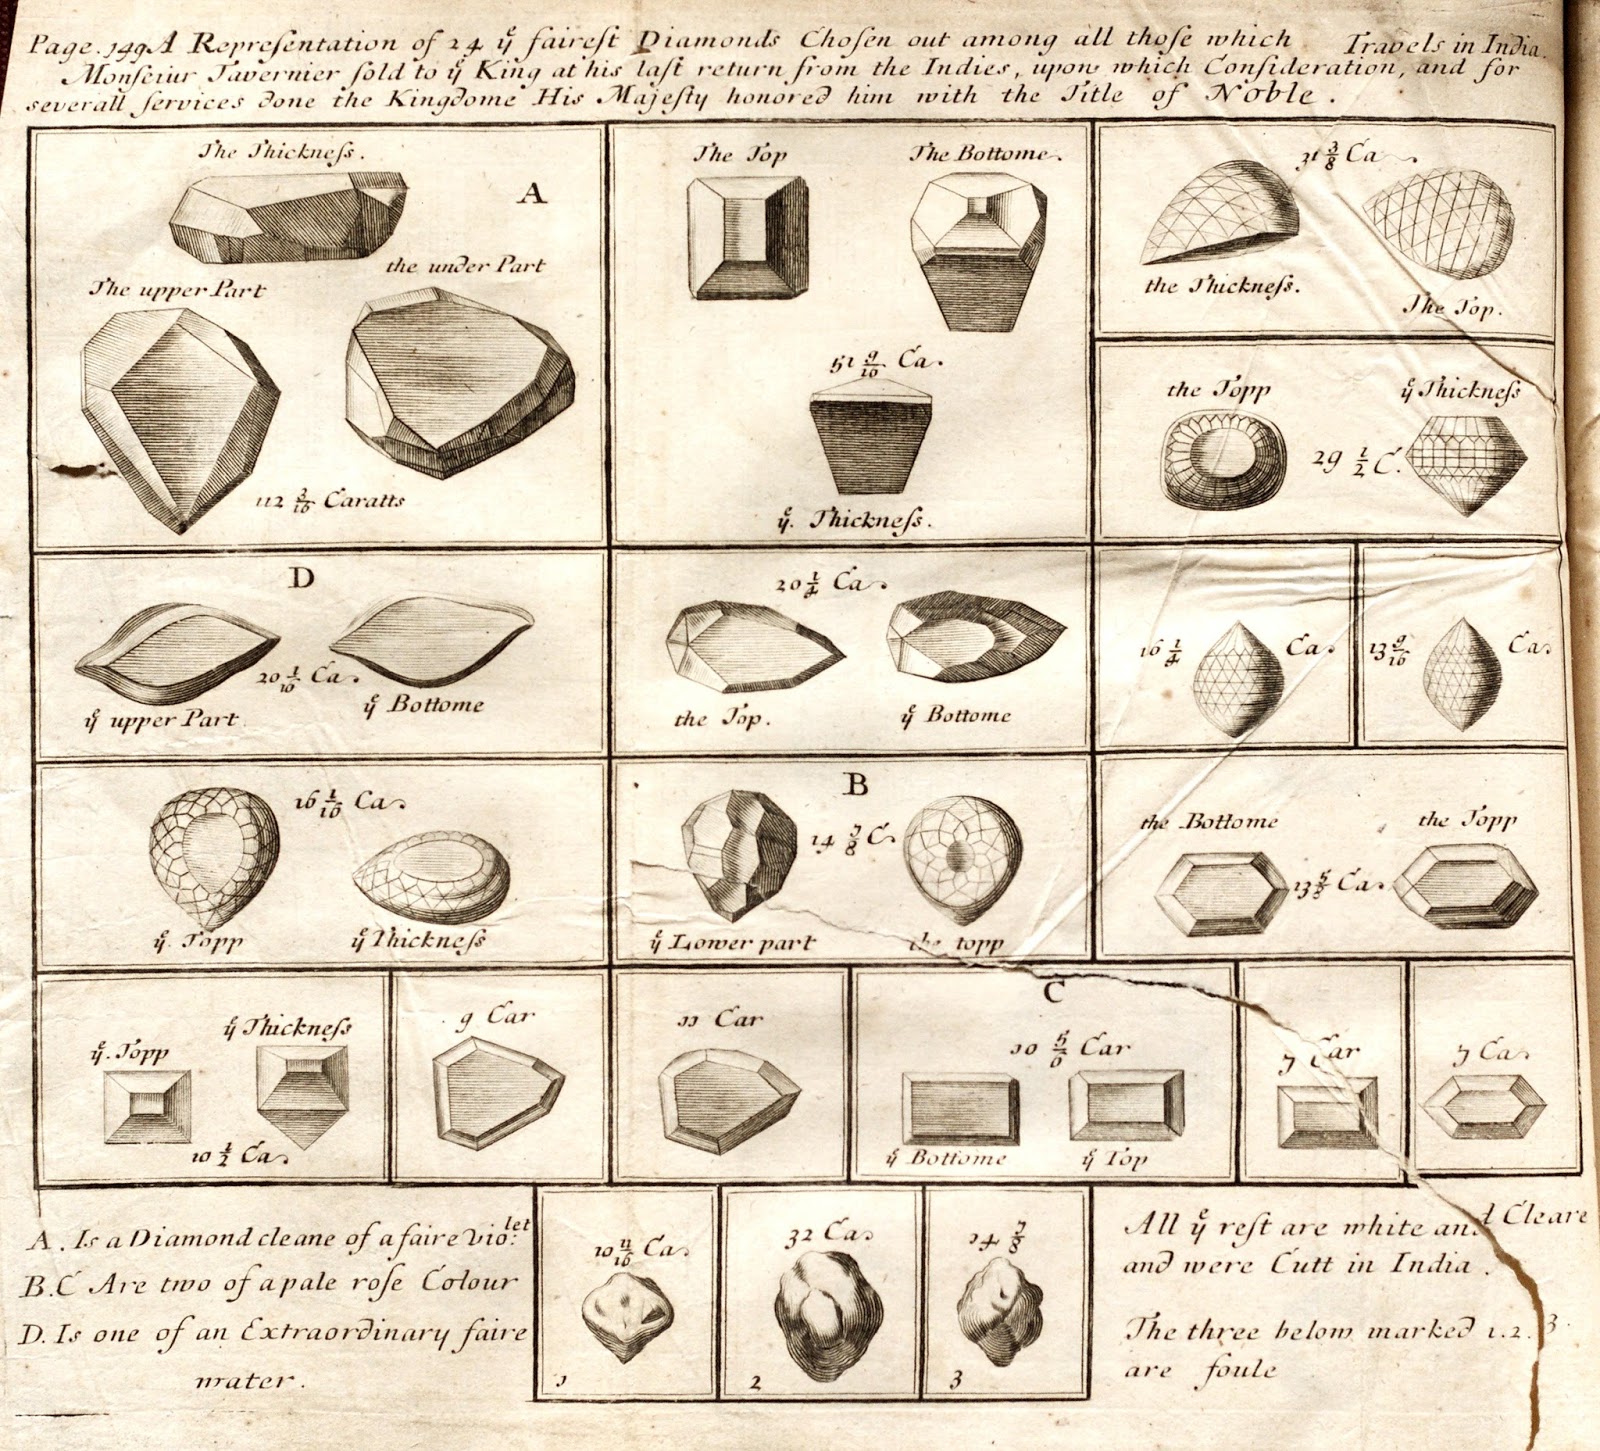 Page. 149 A Repreſentation of 24 yͤ faireſt Diamonds Choſen out among all thoſe which Travels in India.
Monſeiur Tavernier ſold to yͤ King at his laſt return from the Indies, upon which Conſideration, and for
severall ſervices done the Kingdome His Majeſty honored him with the Title of Noble.
The Thickneſs.
A
the under Part
The upper Part
112 3/16 Caratts
The Top
The Bottome.
51 9/10 Ca.
yͤ. Thickneſs.
31 3/8 Ca.
the Thickneſs.
The Top.
the Topp
yͤ Thickneſs
29 1/2 C.
D
20 1/10 Ca.
yͤ upper Part
yͤ Bottome
20 1/4 Ca.
the Top.
yͤ Bottome
16 1/4 Ca.
13 9/16 Ca.
16 1/10 Ca.
yͤ. Topp
yͤ Thickneſs
B
14 7/8 C.
yͤ Lower part
the topp
the Bottome
the Topp
13 5/8 Ca.
yͤ. Topp
yͤ Thickneſs
10 1/2 Ca.
9 Car
11 Car
C
10 5/0 Car
yͤ Bottome
yͤ Top
7 Car
7 Ca.
A. Is a Diamond cleane of a faire vio:let
B.C Are two of a pale roſe Colour
D. Is one of an Extraordinary faire
water.
10 11/16 Ca.
1
32 Ca.
2
24 7/8
3
All yͤ reſt are white and Cleare
and were Cutt in India.
The three below marked 1.2.3.
are foule